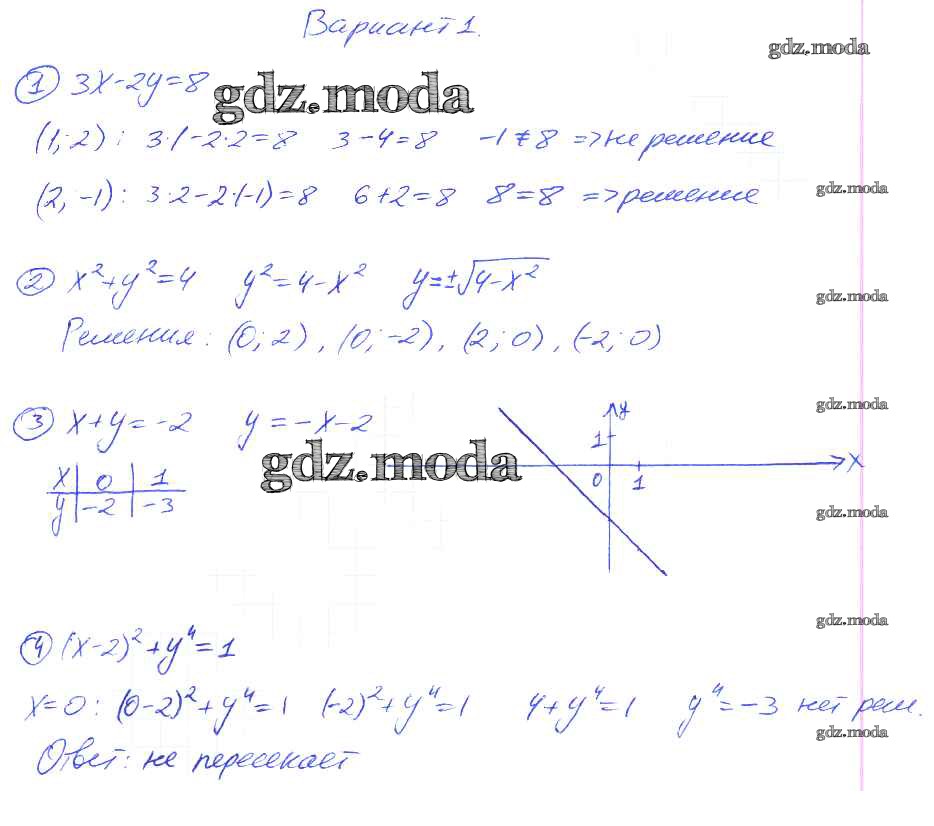 Вариант 1.
gdz.moda
① 3x-2y=8
gdz.moda
(1; 2): 3·1-2·2=8 3-4=8 -1≠8 => не решение
(2; -1): 3·2-2·(-1)=8 6+2=8 8=8 => решение
gdz.moda
② x²+y²=4 y²=4-x² y=±√(4-x²)
gdz.moda
Решения: (0; 2), (0; -2), (2; 0), (-2; 0)
gdz.moda
③ x+y=-2 y=-x-2
gdz.moda
x 0 1
y -2 -3
y
1
0 1 x
gdz.moda
gdz.moda
④ (x-2)²+y⁴=1
x=0: (0-2)²+y⁴=1 (-2)²+y⁴=1 4+y⁴=1 y⁴=-3 нет реш.
gdz.moda
Ответ: не пересекает